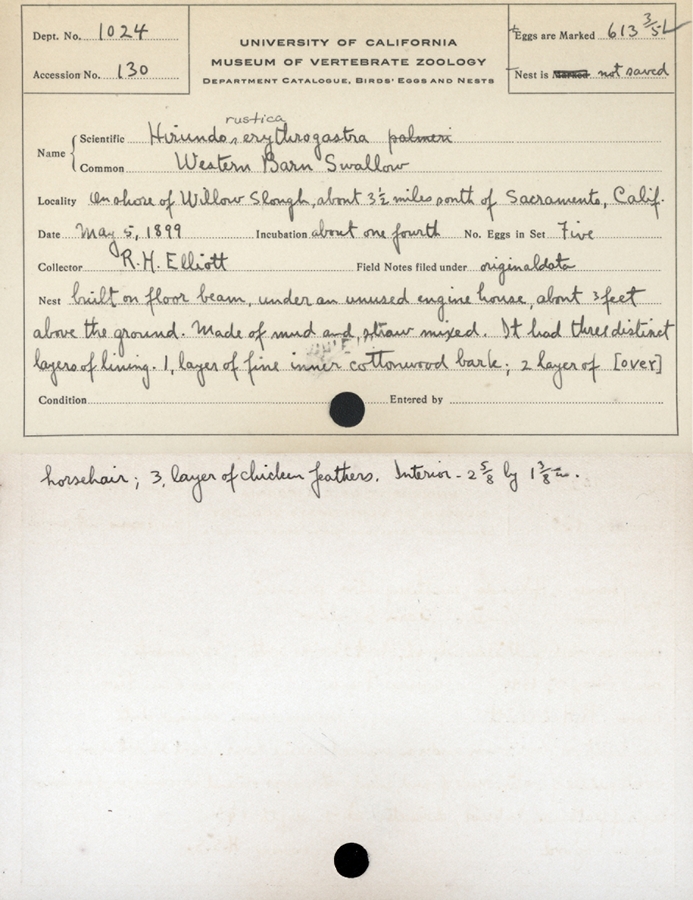 Dept. No. 1024
Accession No. 130
UNIVERSITY OF CALIFORNIA
MUSEUM OF VERTEBRATE ZOOLOGY
DEPARTMENT CATALOGUE, BIRDS' EGGS AND NESTS
Eggs are Marked 613 3/5
Nest is Marked not saved
rustica
Name { Scientific Hirundo erythrogastra palmeri
Common Western Barn Swallow
Locality On shore of Willow Slough, about 3½ miles south of Sacramento, Calif.
Date May 5, 1899 Incubation about one fourth No. Eggs in Set Five
Collector R. H. Elliott Field Notes filed under original data
Nest built on floor beam, under an unused engine house, about 3 feet
above the ground. Made of mud and straw mixed. It had three distinct
layers of lining. 1, layer of fine inner cottonwood bark; 2 layer of [over]
Condition Entered by
horsehair; 3, layer of chicken feathers. Interior - 2 5/8 by 1 3/8 in.